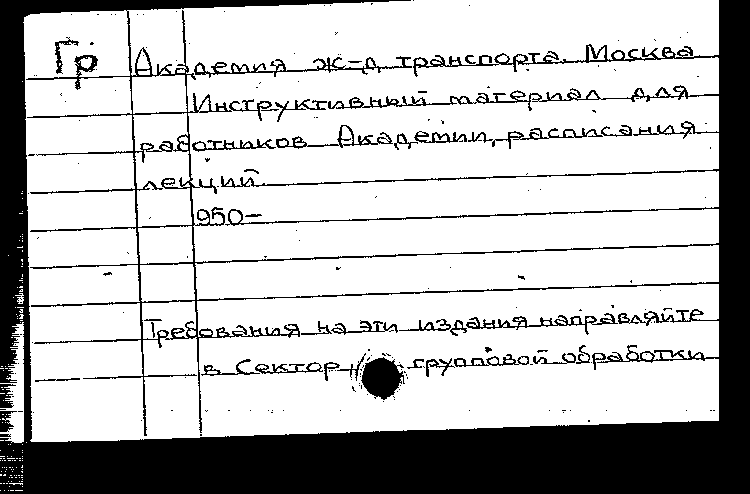 Гр Академия ж-д транспорта. Москва
Инструктивный материал для
работников Академии, расписания
лекций.
950-
Требования на эти издания направляйте
в Сектор групповой обработки